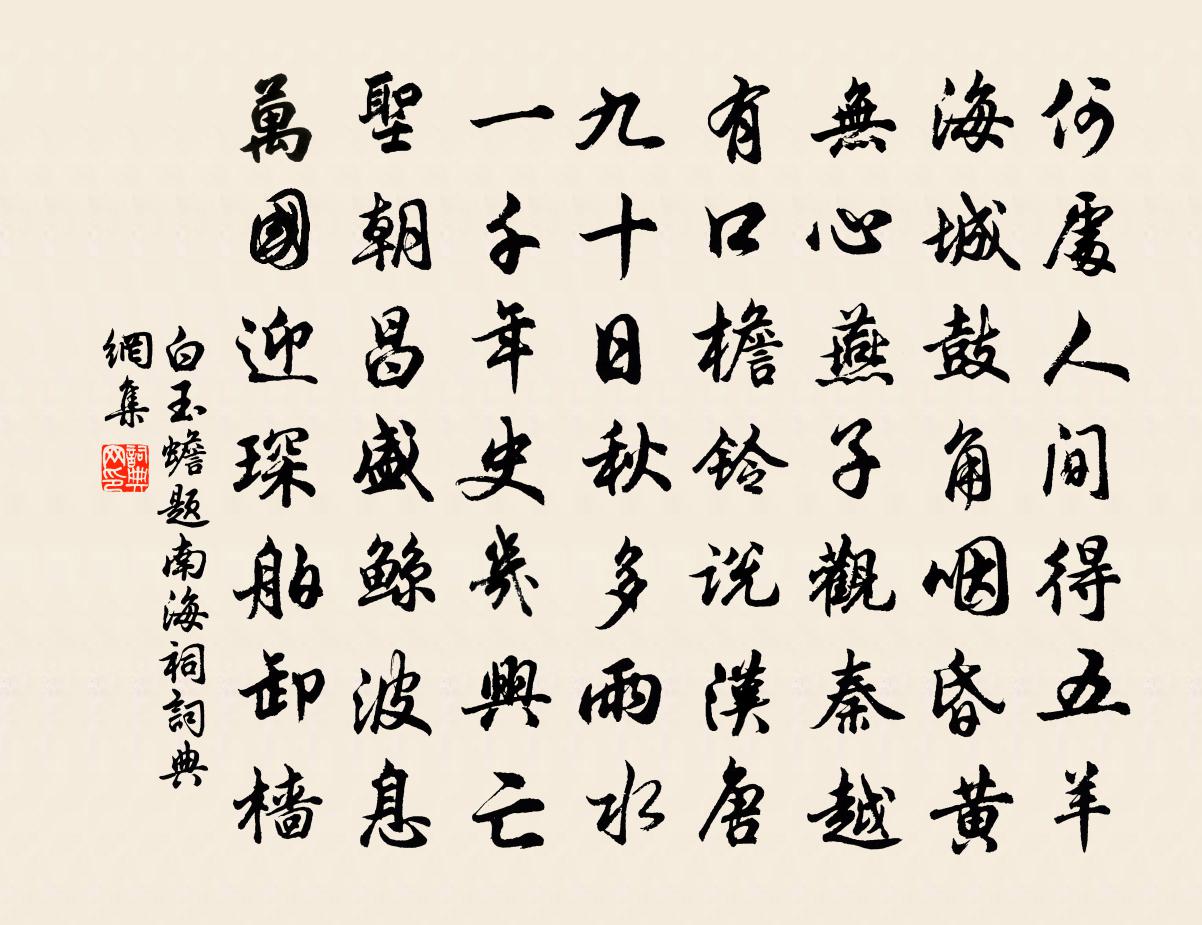 何處人間得五羊
海城鼓角咽昏黃
無心燕子觀秦越
有口檐鈴說漢唐
九十日秋多雨水
一千年史幾興亡
聖朝昌盛鯨波息
萬國迎琛舶卸檣
白玉蟾题南海祠詞典
網集
詞典
网印